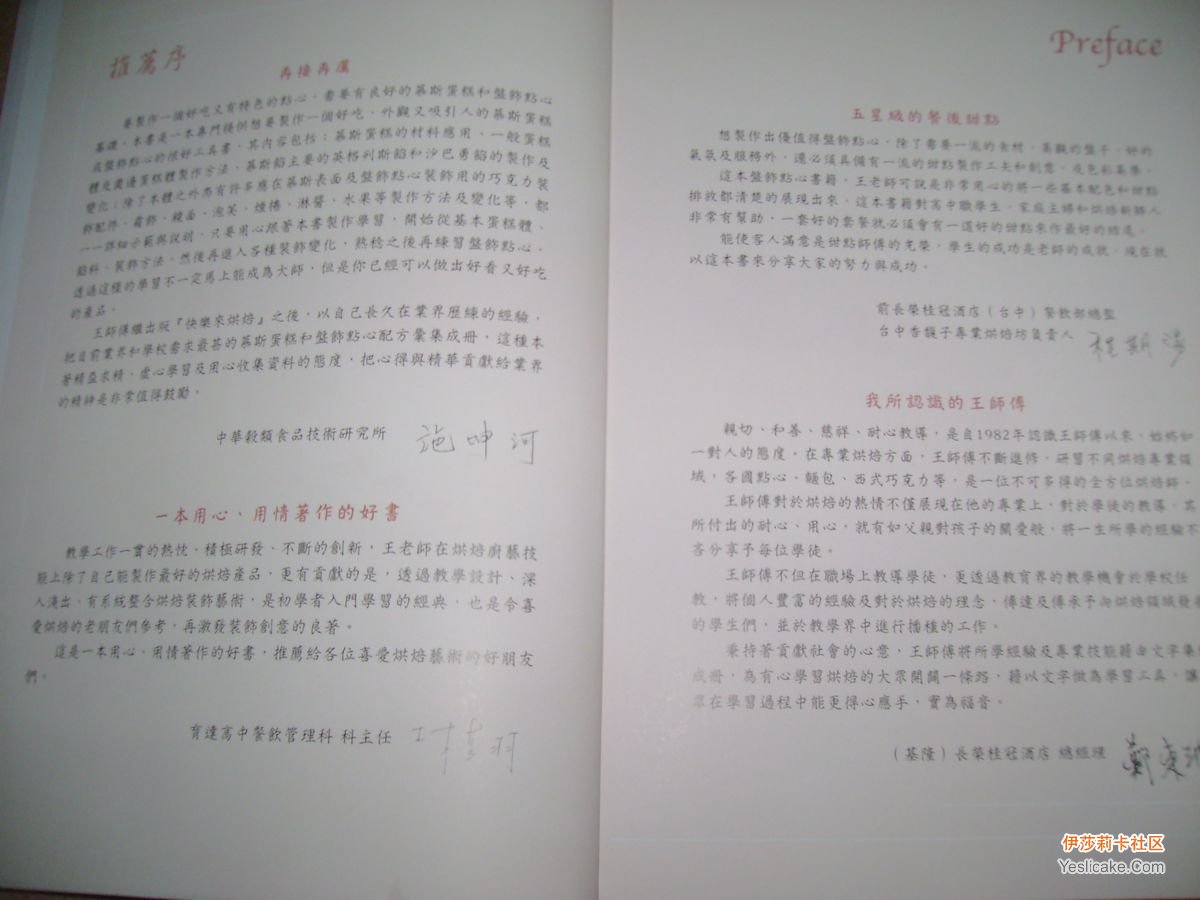 推薦序
再接再厲
要製作一個好吃又有特色的點心，需要有良好的慕斯蛋糕和盤飾點心
基礎，本書是一本專門提供想要製作一個好吃、外觀又吸引人的慕斯蛋糕
成盤飾點心的很好工具書，其內容包括：慕斯蛋糕的材料應用、一般蛋糕
體及圍邊蛋糕體製作方法、慕斯餡主要的英格列斯餡和沙巴勇餡的製作及
變化；除了本體之外尚有許多應在慕斯表面及盤飾點心裝飾用的巧克力裝
飾配件、霜飾、鏡面、泡芙、煙捲、淋醬、水果等製作方法及變化等，都
一一詳細示範與說明，只要用心跟著本書製作學習，開始從基本蛋糕體、
餡料、裝飾方法，然後再進入各種裝飾變化，熟稔之後再練習盤飾點心。
透過這樣的學習不一定馬上能成為大師，但是你已經可以做出好看又好吃
的產品。
王師傅繼出版『快樂來烘焙』之後，以自己長久在業界歷練的經驗，
把目前業界和學校需求最甚的慕斯蛋糕和盤飾點心配方彙集成冊，這種本
著精益求精、虛心學習及用心收集資料的態度，把心得與精華貢獻給業界
的精神是非常值得鼓勵。
中華穀類食品技術研究所 施坤河
一本用心、用情著作的好書
教學工作一貫的熱忱，積極研發、不斷的創新，王老師在烘焙廚藝技
能上除了自己能製作最好的烘焙產品，更有貢獻的是，透過教學設計、深
入淺出、有系統整合烘焙裝飾藝術，是初學者入門學習的經典，也是令喜
愛烘焙的老朋友們參考，再激發裝飾創意的良著。
這是一本用心、用情著作的好書，推薦給各位喜愛烘焙藝術的好朋友
們。
育達高中餐飲管理科 科主任
Preface
五星級的餐後甜點
想製作出優值得盤飾點心，除了需要一流的食材、美觀的盤子、好的
氣氛及服務外，還必須具備有一流的甜點製作工夫和創意，及色彩美學。
這本盤飾點心書籍，王老師可說是非常用心的將一些基本配色和甜點
排放都清楚的展現出來，這本書籍對高中職學生、家庭主婦和烘焙新鮮人
非常有幫助，一套好的套餐就必須會有一道好的甜點來作最好的結尾。
能使客人滿意是甜點師傅的光榮，學生的成功是老師的成就，現在就
以這本書來分享大家的努力與成功。
前長榮桂冠酒店（台中）餐飲部總監
台中香馥子專業烘焙坊負責人
我所認識的王師傅
親切、和善、慈祥、耐心教導，是自1982年認識王師傅以來，始終如
一對人的態度，在專業烘焙方面，王師傅不斷進修，研習不同烘焙專業領
域，各國點心、麵包、西式巧克力等，是一位不可多得的全方位烘焙師。
王師傅對於烘焙的熱情不僅展現在他的專業上，對於學徒的教導，其
所付出的耐心、用心，就有如父親對孩子的關愛般，將一生所學的經驗不
吝分享予每位學徒。
王師傅不但在職場上教導學徒，更透過教育界的教學機會於學校任
教，將個人豐富的經驗及對於烘焙的理念，傳達及傳承予向烘焙領域發
的學生們，並於教學界中進行播種的工作。
秉持著貢獻社會的心意，王師傅將所學經驗及專業技能藉由文字集
成冊，為有心學習烘焙的大眾開闢一條路，藉以文字做為學習工具，讓
眾在學習過程中能更得心應手，實為福音。
（基隆）長榮桂冠酒店 總經理
伊莎莉卡社区
Yeslicake.Com